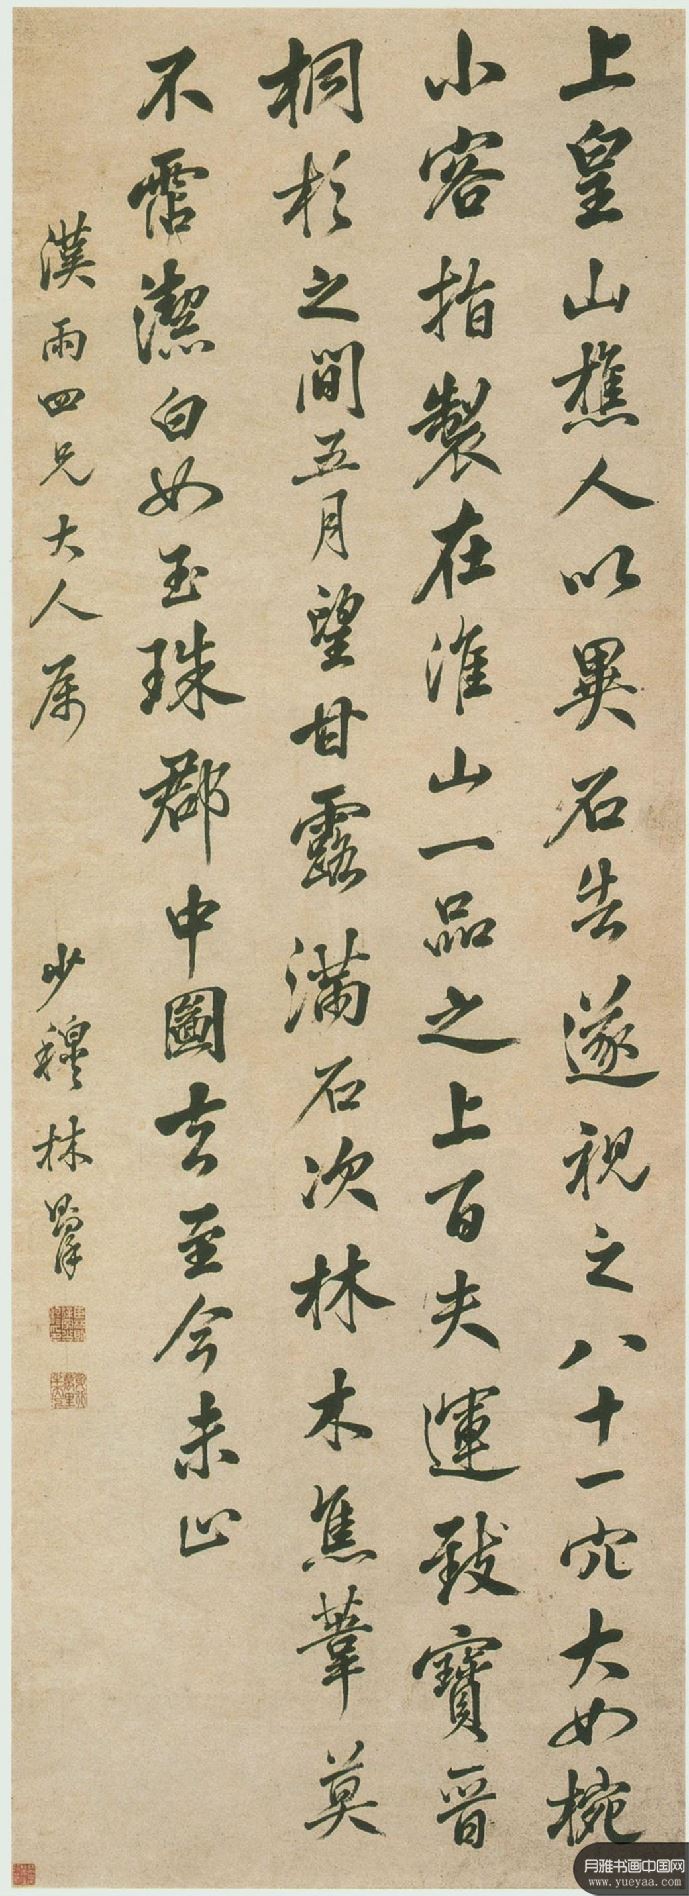 上皇山樵人以異石告遂視之八十一穴大如椀
小容指製在淮山一品之上百夫運致寶晉
桐杉之間五月望甘露滿石次林木焦葦莫
不霑潔白如玉珠郡中圖去至今未止
漢雨四兄大人屬
少穆林則徐
月雅书画中国网
www.yueyaa.com